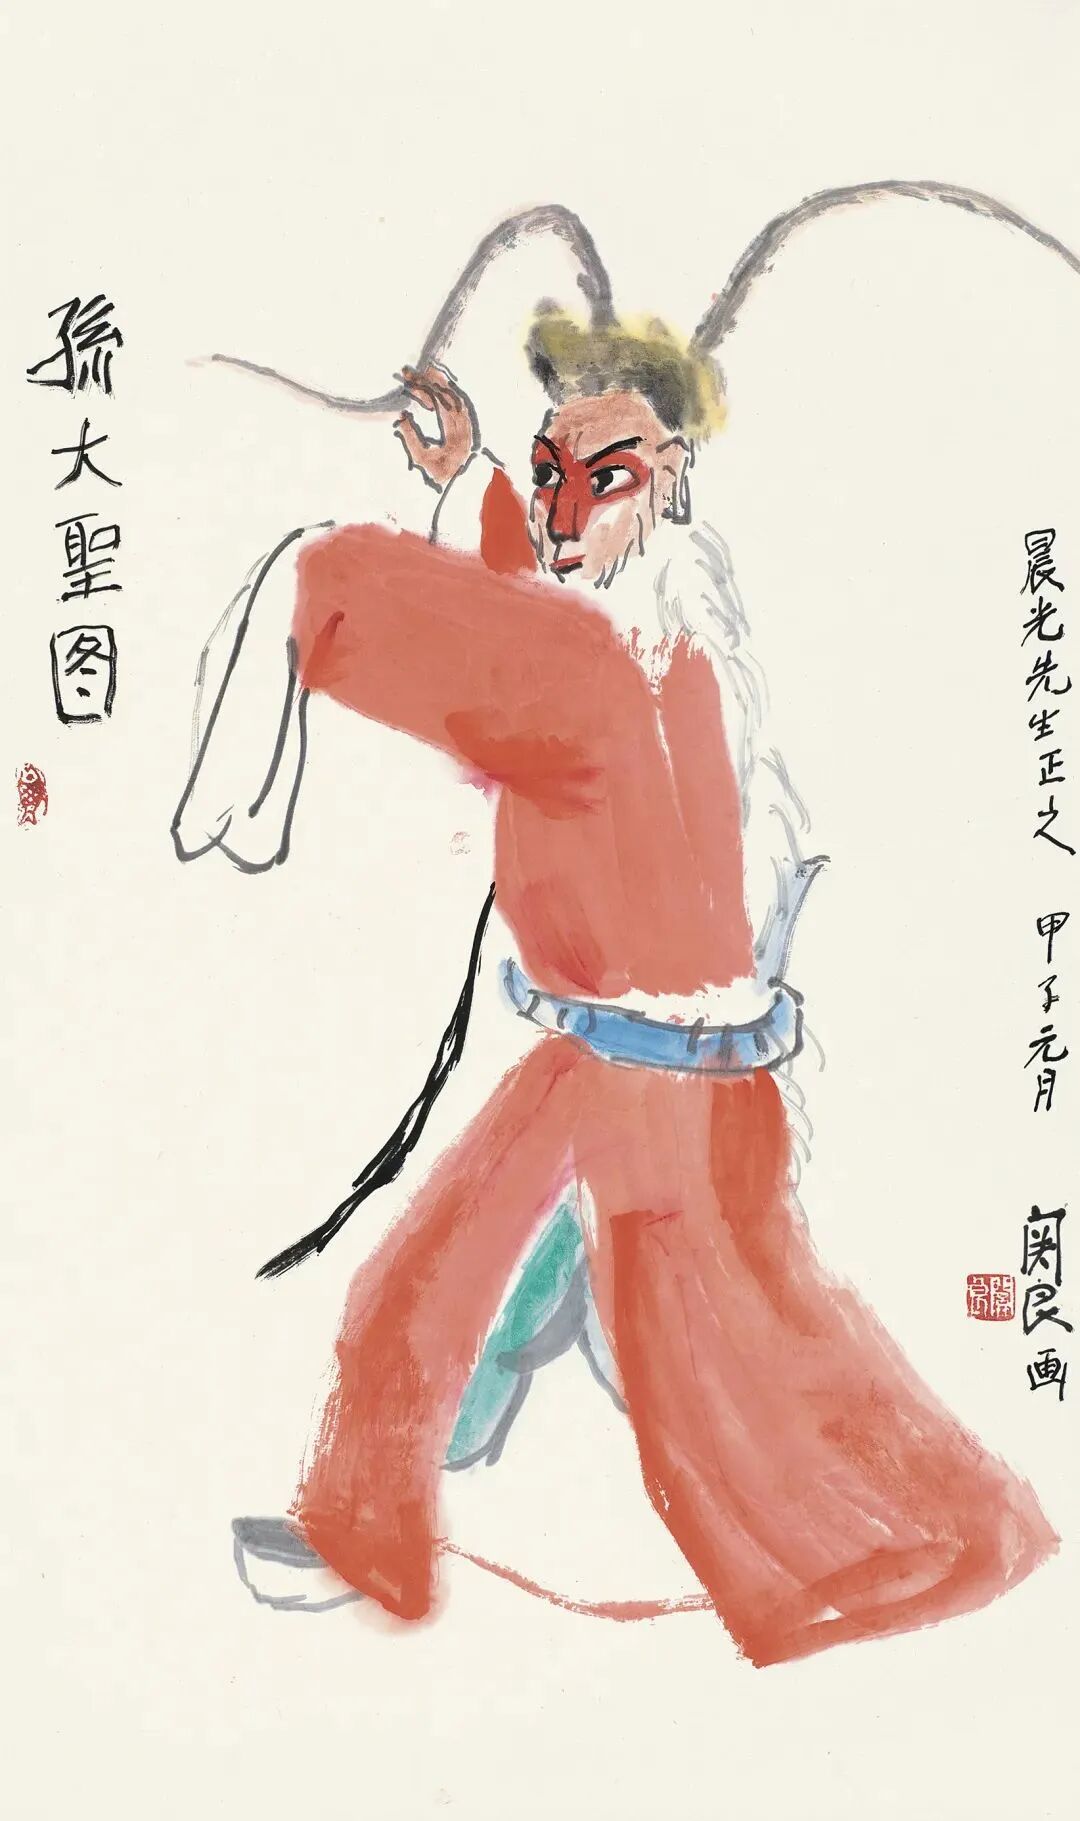 晨光先生正之 甲子元月
関良画
孫大聖图
関良